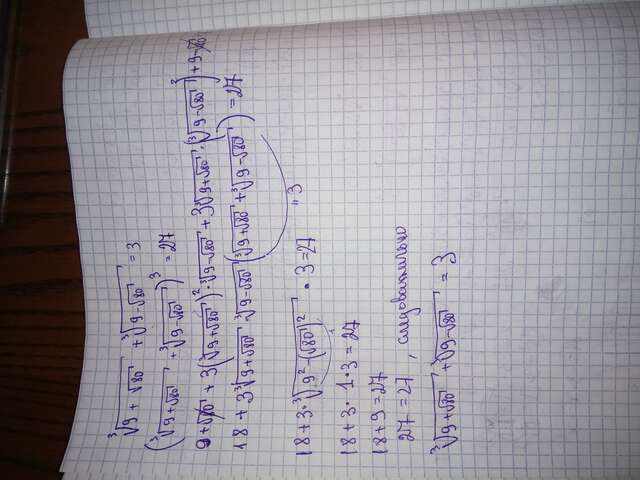 ∛(9+√80) + ∛(9-√80) = 3
(∛(9+√80) + ∛(9-√80))³ = 27
9+√80 + 3(∛(9+√80))² · ∛(9-√80) + 3∛(9+√80) · (∛(9-√80))² + 9-√80
18 + 3∛(9+√80) · ∛(9-√80) (∛(9+√80) + ∛(9-√80)) = 27
"3
18 + 3 · ∛(9² - (√80)²) · 3 = 27
1
18 + 3 · 1 · 3 = 27
18 + 9 = 27
27 = 27, следовательно
∛(9+√80) + ∛(9-√80) = 3